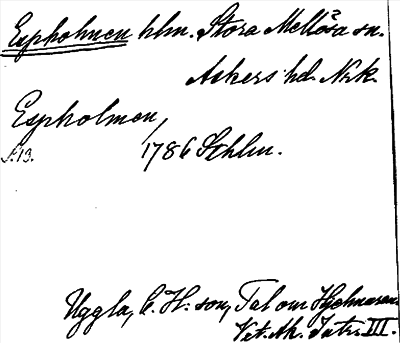 Espholmen hlm. Stora Mellösa sn.
Askers hd. Nrk.
Espholmen,
s. 13.
1786 Sthlm.
Uggla, C. H:son, Tal om Hjelmaren.
Vet. Ak. Intr. III.